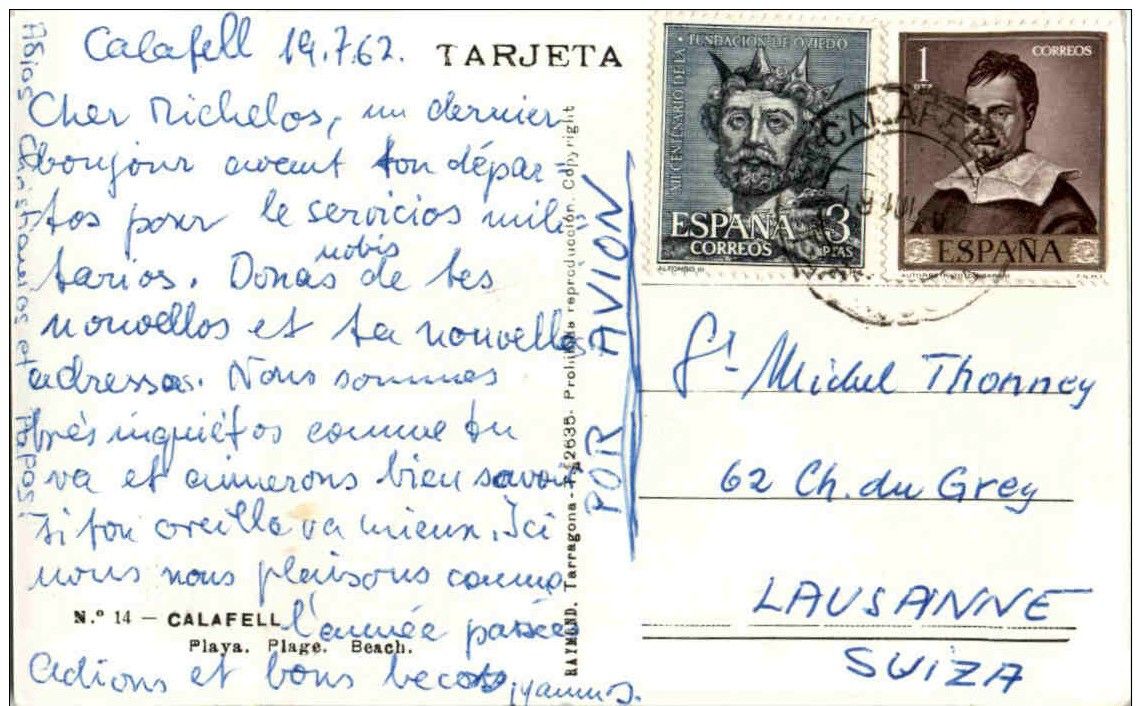 Calafell 19.7.62.
TARJETA
Cher Michelos, un dernier
bonjour avant ton dépar-
tos pour le servicios mili-
tarios. Donas nobis de tes
nouvellos et ta nouvellos
adressos. Nous sommes
très inquiétos comme tu
va et aimerons bien savoir
si ton oreilla va mieux. Ici
nous nous plaisons comma
l'année passée
Adions et bons becos
Adios et Papos!
N.º 14 — CALAFELL
Playa. Plage. Beach.
RAYMOND. Tarragona - 2635- Prohibida reproducción. Copyright
POR AVION
XII CENTENARIO DE LA FUNDACION DE OVIEDO
ESPAÑA
CORREOS
3 PTAS
ALFONSO III
1 PTA
CORREOS
ESPAÑA
CALAFELL
Michel Thonney
62 Ch. du Grey
LAUSANNE
SUIZA